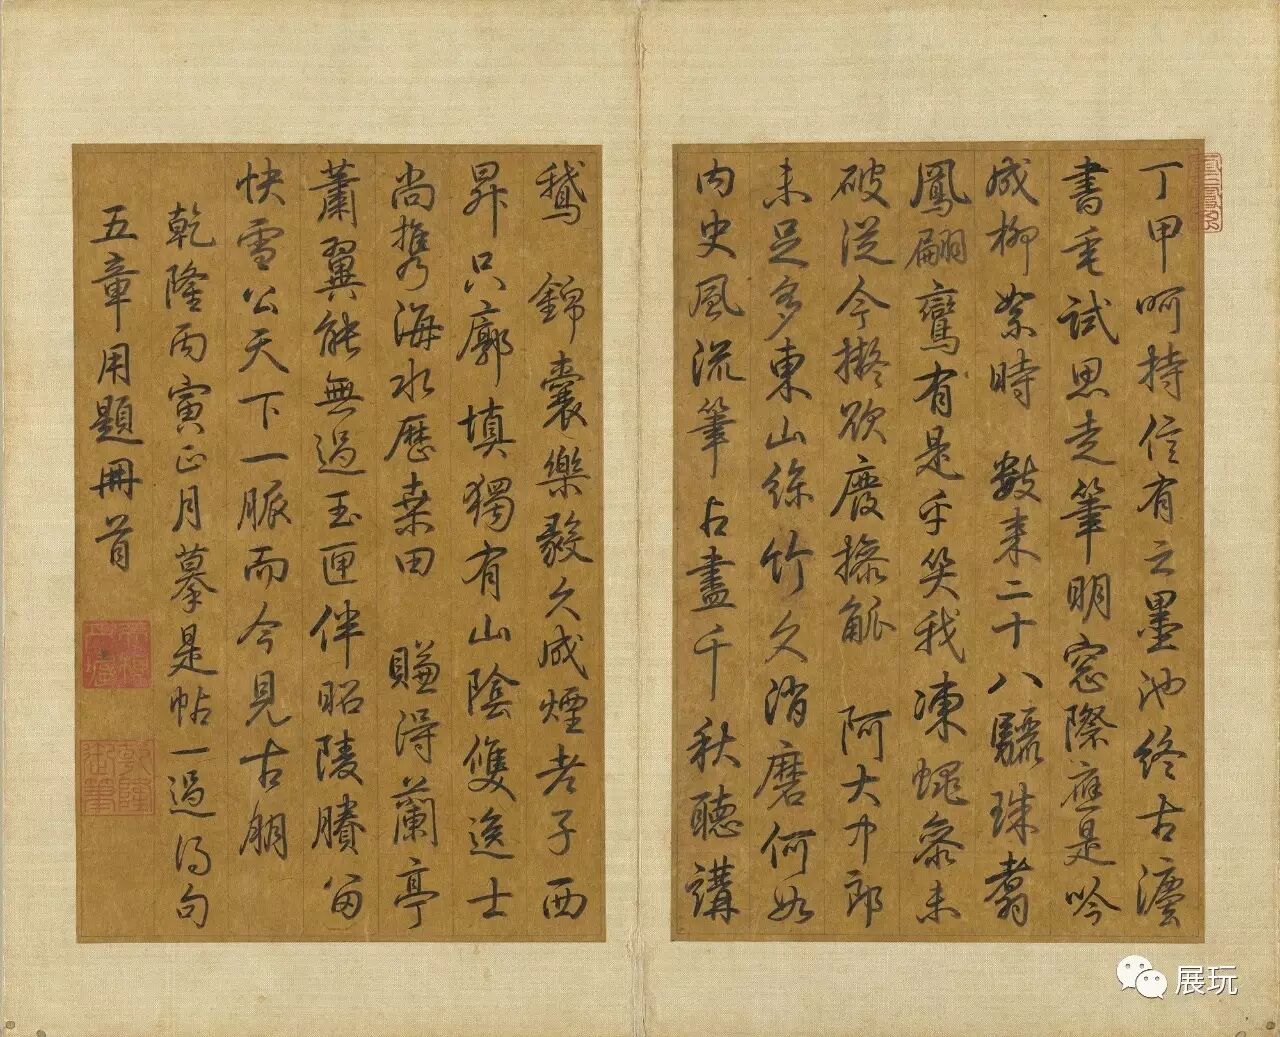 丁甲呵持信有之墨池終古瀍
書毛試思走筆明窓際應是吟
成柳絮時　數來二十八驪珠翥
鳳翩鸞有是乎笑我凍蠅參未
破從今擬欲廢操觚　阿大中郎
未足多東山絲竹久消磨何如
內史風流筆占盡千秋聽講
鵝　錦囊樂毅久成煙老子西
昇只廓填獨有山陰雙逸士
尚攜海水歷桒田　賺得蘭亭
蕭翼能無過玉匣伴昭陵賸留
快雪公天下一脈而今見古朋
乾隆丙寅正月摹是帖一過得句
五章用題冊首
乾隆
御筆
展玩